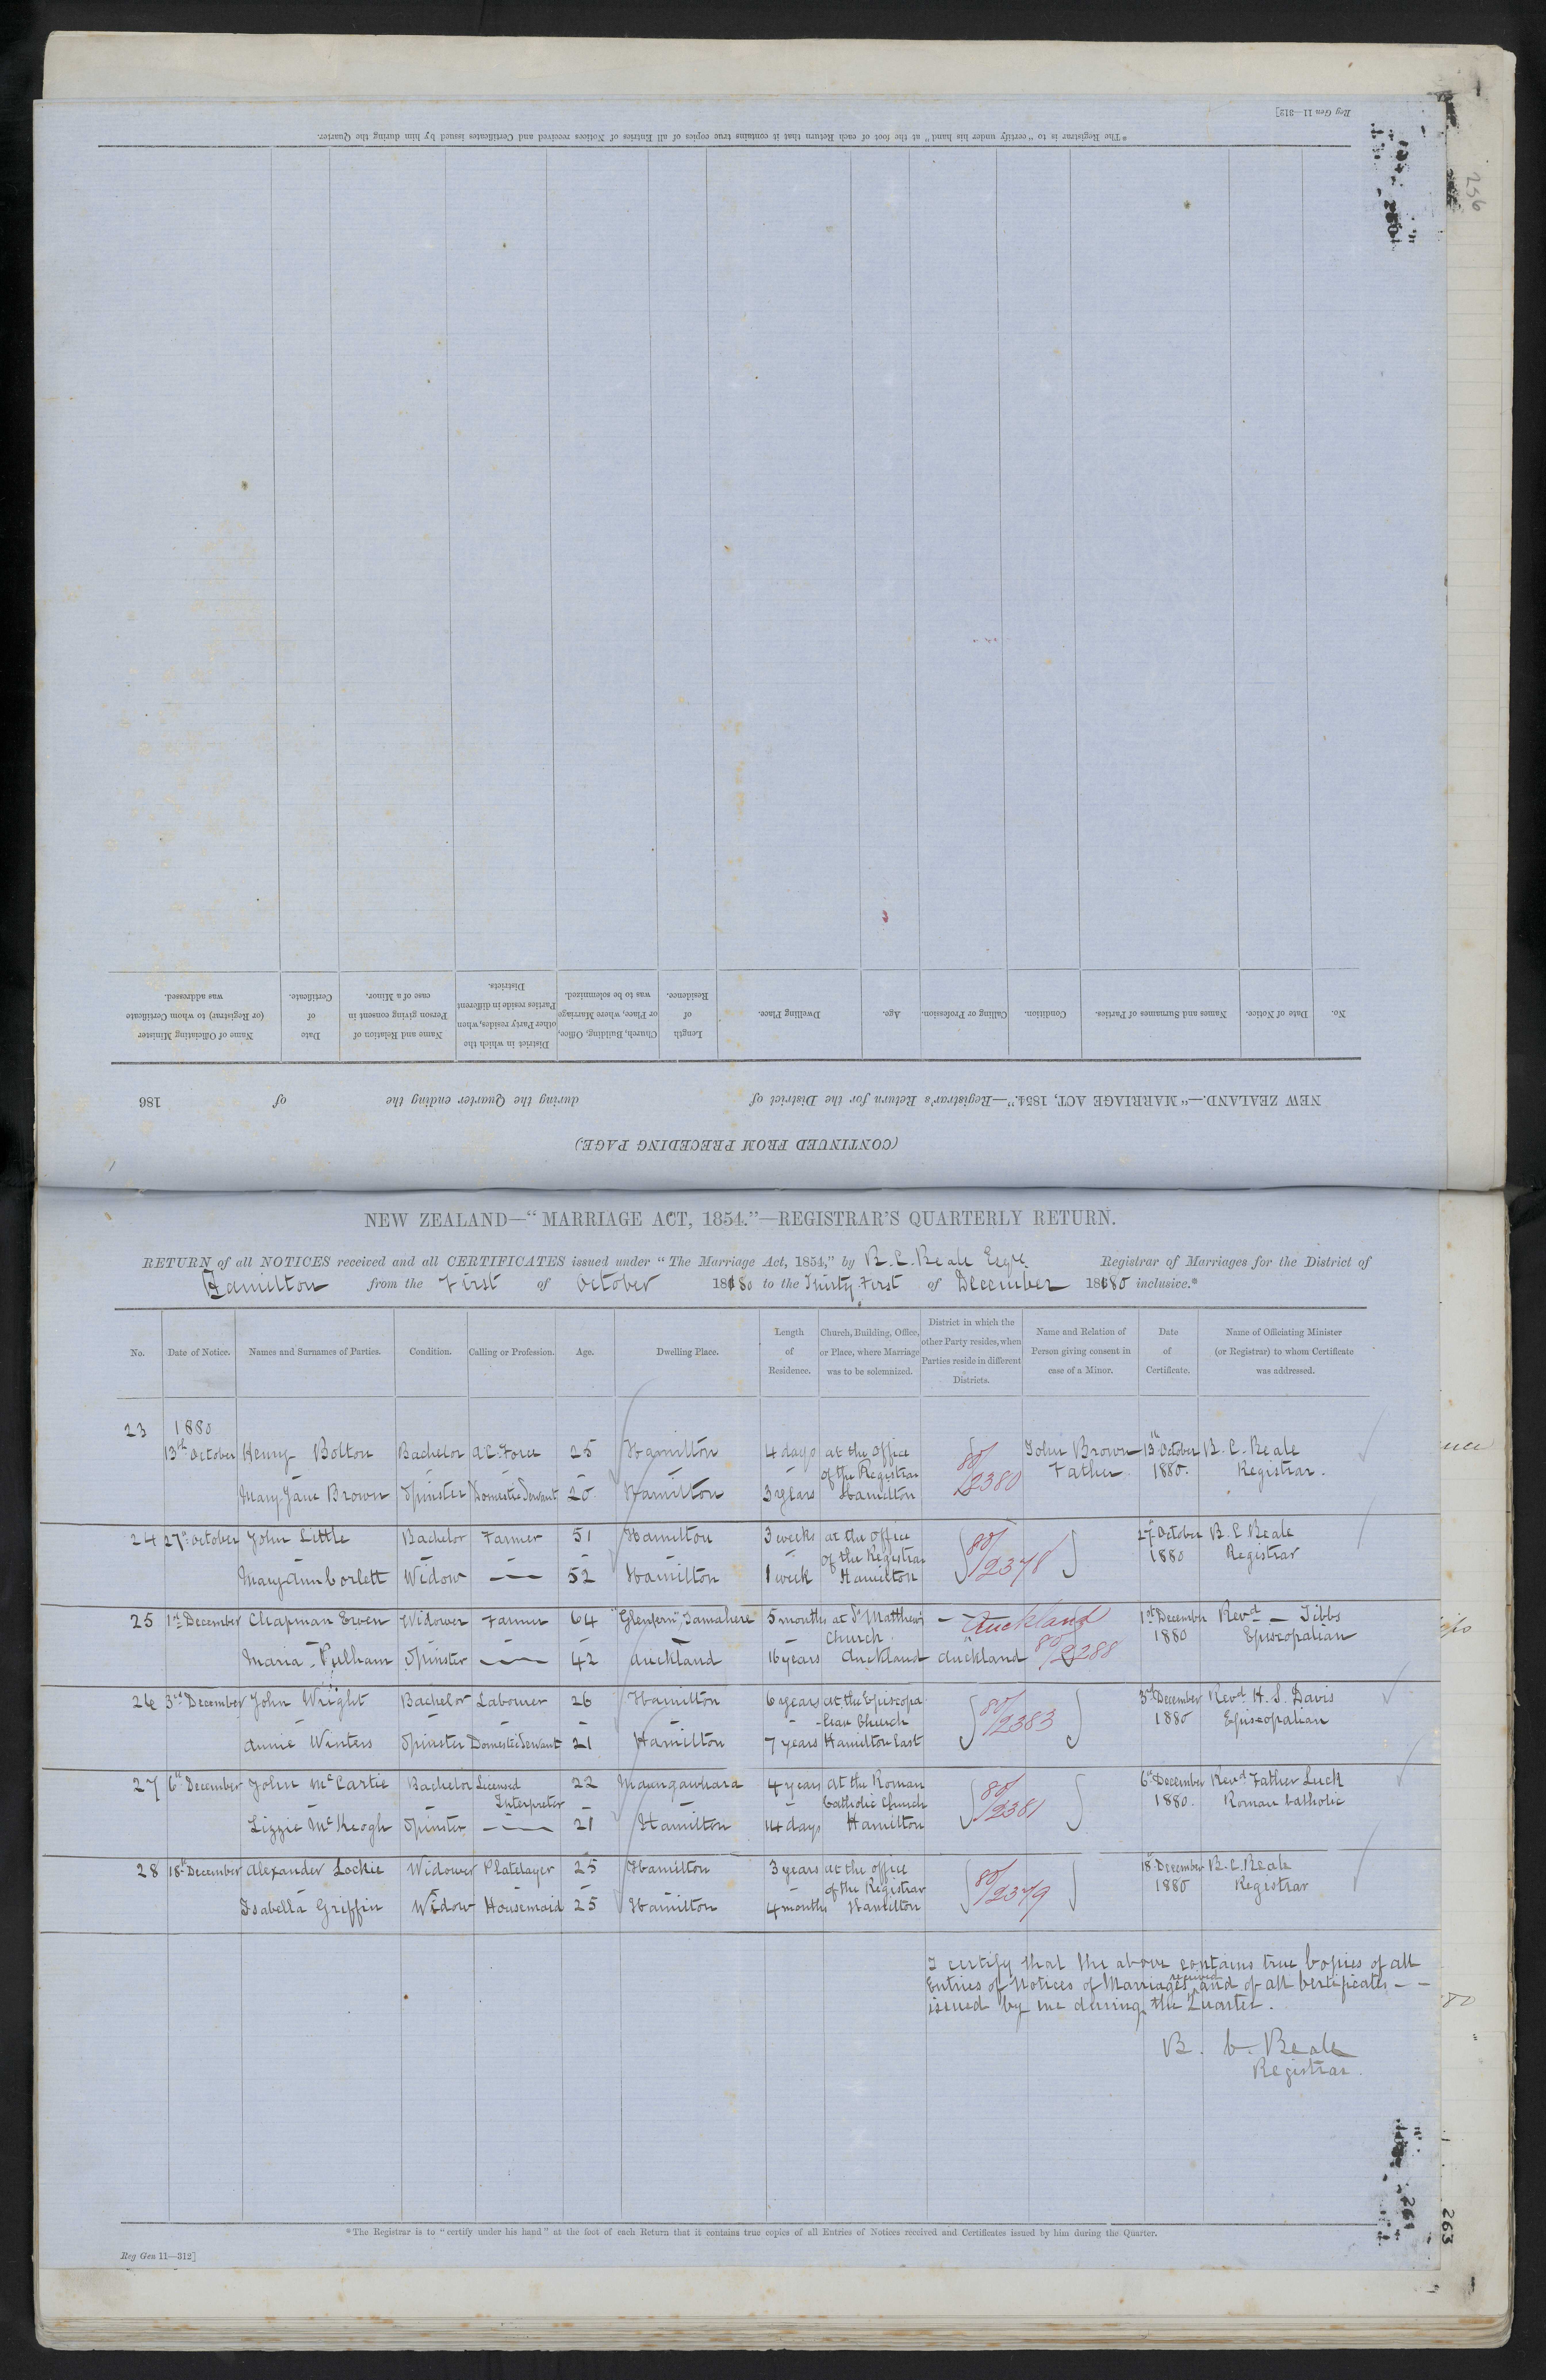 *The Registrar is to "certify under his hand" at the foot of each Return that it contains true copies of all Entries of Notices received and Certificates issued by him during the Quarter.
Reg Gen 11—312]
256
(CONTINUED FROM PRECEDING PAGE.)
NEW ZEALAND.—"MARRIAGE ACT, 1854."—Registrar's Return for the District of during the Quarter ending the of 186
No. Date of Notice. Names and Surnames of Parties. Condition. Calling or Profession. Age. Dwelling Place. Length of Residence. Church, Building, Office, or Place, where Marriage was to be solemnized. District in which the other Party resides, when Parties reside in different Districts. Name and Relation of Person giving consent in case of a Minor. Date of Certificate. Name of Officiating Minister (or Registrar) to whom Certificate was addressed.
NEW ZEALAND—"MARRIAGE ACT, 1854."—REGISTRAR'S QUARTERLY RETURN.
RETURN of all NOTICES received and all CERTIFICATES issued under "The Marriage Act, 1854," by B. C. Beale Esqre. Registrar of Marriages for the District of
Hamilton from the First of October 1880 to the Thirty First of December 1880 inclusive.*
No. Date of Notice. Names and Surnames of Parties. Condition. Calling or Profession. Age. Dwelling Place. Length of Residence. Church, Building, Office, or Place, where Marriage was to be solemnized. District in which the other Party resides, when Parties reside in different Districts. Name and Relation of Person giving consent in case of a Minor. Date of Certificate. Name of Officiating Minister (or Registrar) to whom Certificate was addressed.
23 1880
13th October Henry Bolton Bachelor A.C. Force 25 Hamilton 4 days at the office John Brown 13th October B. C. Beale
of the Registrar 80/2380 Father 1880. Registrar.
Mary Jane Brown Spinster Domestic Servant 20 Hamilton 3 years Hamilton
24 27th October John Little Bachelor Farmer 51 Hamilton 3 weeks at the office 27th October B. C. Beale
of the Registrar 80/2378 1880 Registrar
Mary Ann Corlett Widow — 52 Hamilton 1 week Hamilton
25 1st December Chapman Erven Widower Farmer 64 "Glenfern", Tamahere 5 months at St Matthew's — Auckland 1st December Revd — Tibbs
Church 80/2288 1880 Episcopalian
Maria Pulham Spinster — 42 Auckland 16 years Auckland Auckland
26 3rd December John Wright Bachelor Labourer 26 Hamilton 6 years at the Episcopa- 3rd December Revd H. S. Davis
-lian Church 80/2383 1880 Episcopalian
Annie Winters Spinster Domestic Servant 21 Hamilton 7 years Hamilton East
27 6th December John McCartie Bachelor Licensed 22 Maungawhara 4 years at the Roman 6th December Revd Father Luck
Interpreter Catholic Church 80/2381 1880. Roman Catholic
Lizzie McKeogh Spinster — 21 Hamilton 14 days Hamilton
28 18th December Alexander Lockie Widower Platelayer 25 Hamilton 3 years at the office 18th December B. C. Beale
of the Registrar 80/2379 1880 Registrar
Isabella Griffin Widow Housemaid 25 Hamilton 4 months Hamilton
I certify that the above contains true Copies of all
Entries of Notices of Marriages received and of all Certificates — —
issued by me during the Quarter.
B. C. Beale
Registrar.
*The Registrar is to "certify under his hand" at the foot of each Return that it contains true copies of all Entries of Notices received and Certificates issued by him during the Quarter.
Reg Gen 11—312]
261
263